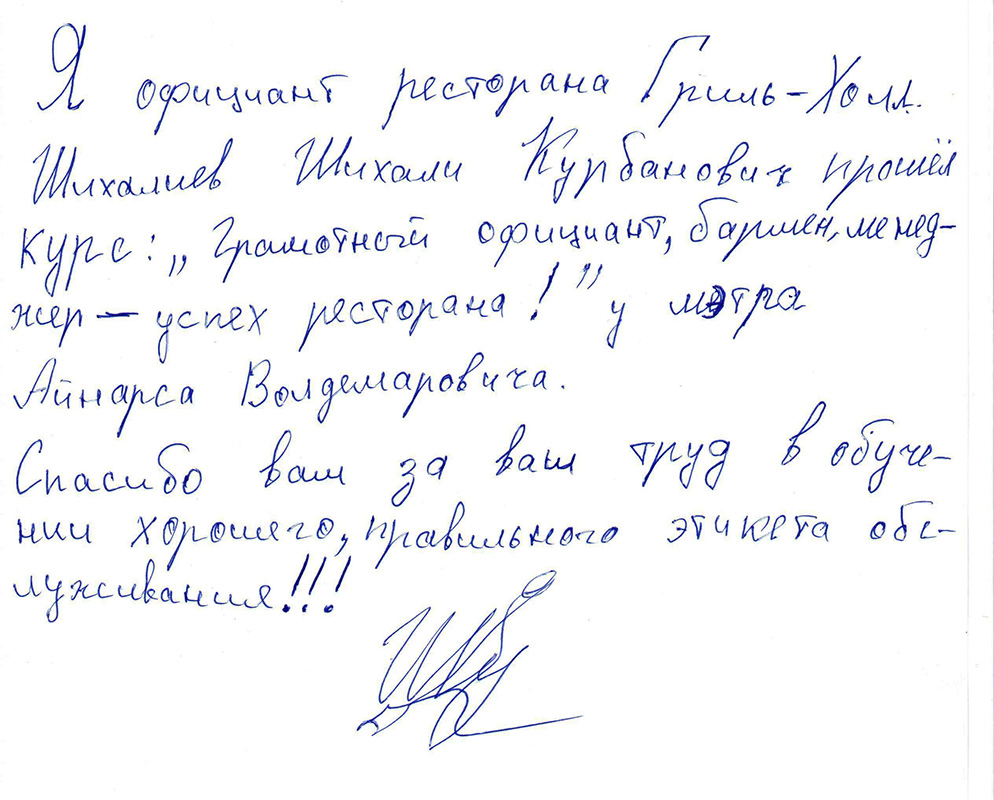 Я официант ресторана Гриль-Холл.
Шихалиев Шихали Курбанович прошёл
курс: „Грамотный официант, бармен, менед-
жер — успех ресторана!” у мэтра
Айнарса Волдемаровича.
Спасибо вам за ваш труд в обуче-
нии хорошего, правильного этикета обс-
луживания!!!